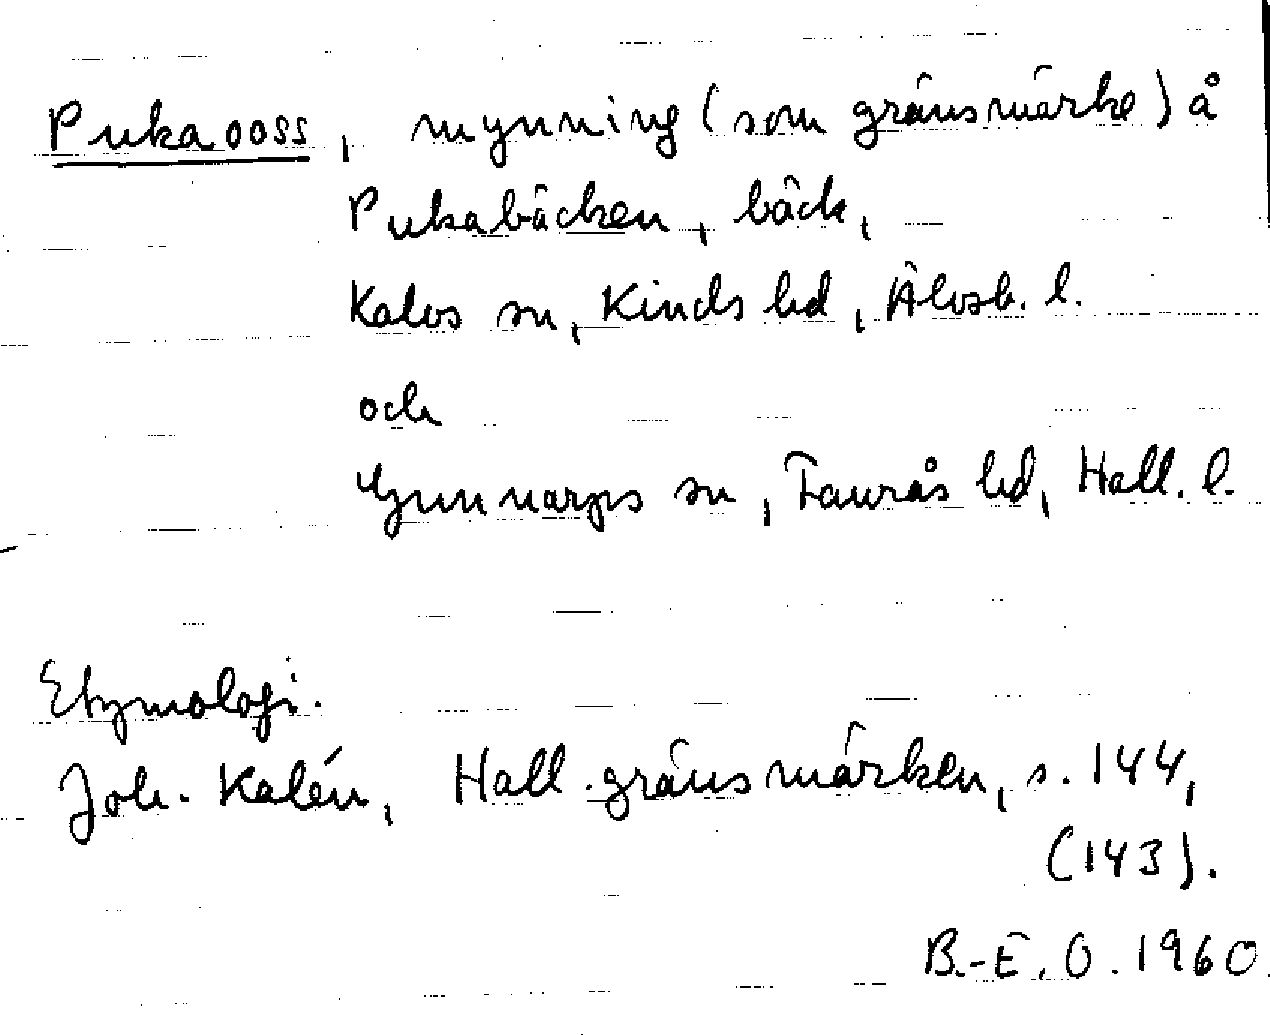 Pukaooss, mynning (som gränsmärke) å
Pukabäcken, bäck,
Kalvs sn, Kinds hd, Älvsb. l.
och
Gunnarps sn, Faurås hd, Hall. l.
Etymologi.
Joh. Kalén, Hall. gränsmärken, s. 144,
(143).
B.-E. O. 1960